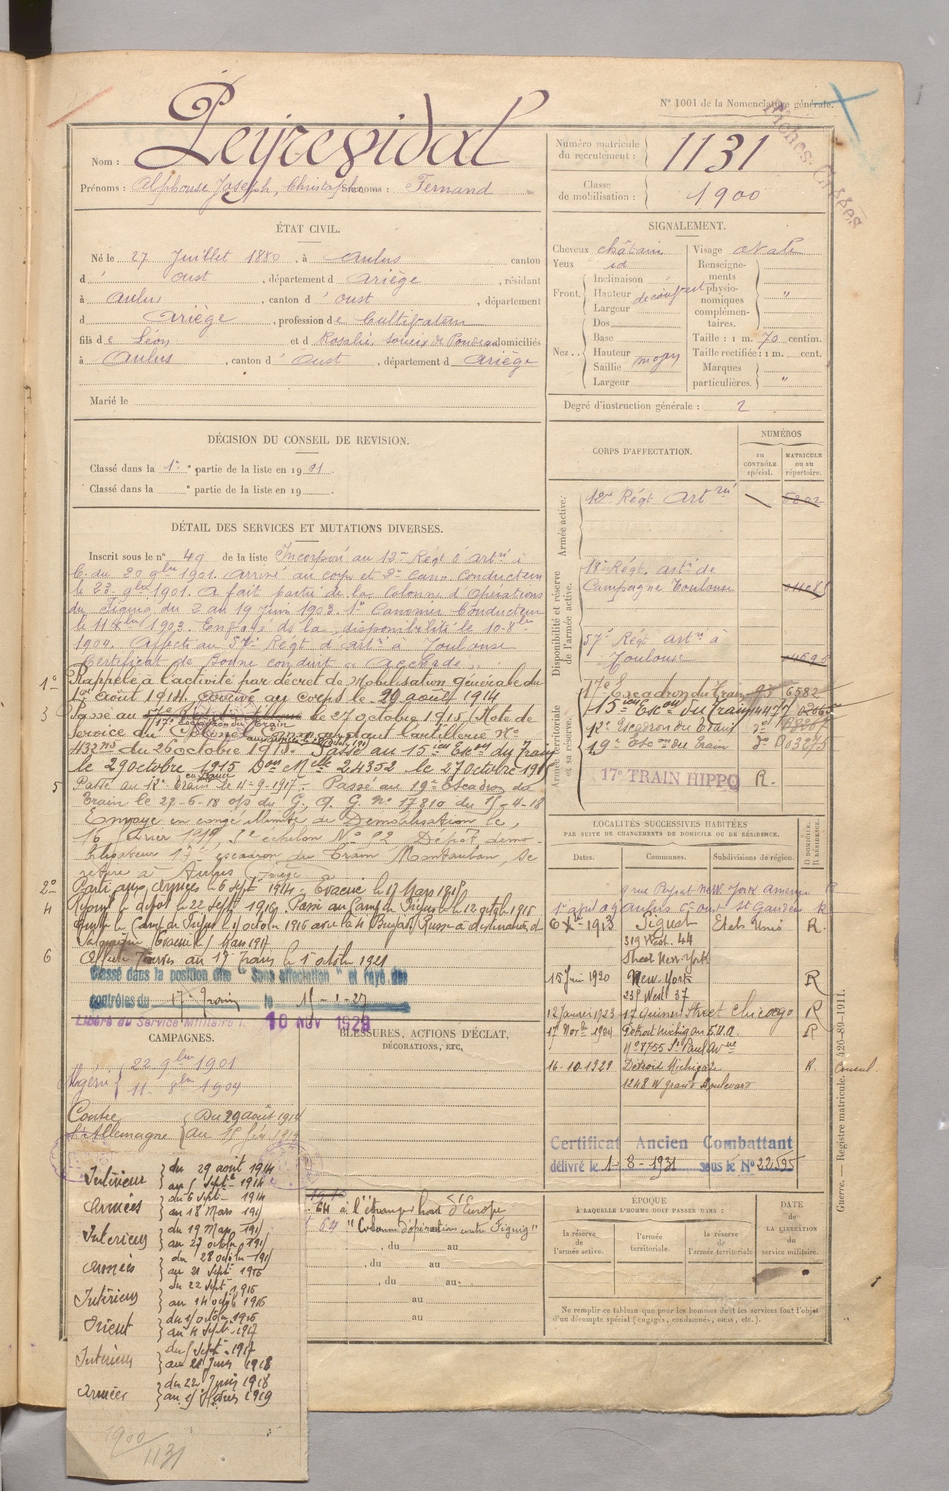 N° 1001 de la Nomenclature générale.
Fiches Croisées
Nom : Peyrevidal
Prénoms : Alphonse Joseph, Christophe Surnoms : Fernand
Numéro matricule du recrutement : 1131
Classe de mobilisation : 1900
ÉTAT CIVIL.
Né le 27 Juillet 1880, à Aulus canton
d' Oust, département d Ariège, résidant
à Aulus, canton d' Oust, département
d Ariège, profession de Cultivateur
fils de Léon et d Rosalie Soueix de Pondeau domiciliés
à Aulus, canton d' Oust, département d Ariège
Marié le
SIGNALEMENT.
Cheveux châtain
Yeux id
Front.
Inclinaison
Hauteur découvert
Largeur
Nez
Dos
Base
Hauteur moyen
Saillie
Largeur
Visage ovale
Renseignements physionomiques complémentaires. "
Taille : 1 m. 70 centim.
Taille rectifiée : 1 m. cent.
Marques particulières. "
Degré d'instruction générale : 2
DÉCISION DU CONSEIL DE REVISION.
Classé dans la 1re partie de la liste en 1901.
Classé dans la e partie de la liste en 19 .
CORPS D'AFFECTATION.
NUMÉROS
au CONTRÔLE spécial.
MATRICULE ou au répertoire.
Armée active.
12e Régt Art rie
Disponibilité et réserve de l'armée active.
18e Régt. art ie de
Campagne Toulouse
57e Régt art ie à
Toulouse
Armée territoriale et sa réserve.
17e Escadron du Train 6582
15ième Esc on du Train
18e Escadron du Train
19e Esc on du Train
17e TRAIN HIPPO R.
DÉTAIL DES SERVICES ET MUTATIONS DIVERSES.
Inscrit sous le n° 49 de la liste Incorporé au 12e Régt d'Art ie à
C. du 20 9bre 1901. Arrivé au corps et 2e Canon Conducteur
le 23 9bre 1901. A fait partie de la Colonne d'Opérations
du Figuig du 2 au 19 juin 1903. 1er Canonnier Conducteur
le 11 8bre 1903. Envoyé ds la disponibilité le 10 8bre
1904. Affecté au 57e Régt d'art ie à Toulouse
Certificat de Bonne conduite "Accordé".
1° Rappelé à l'activité par décret de Mobilisation générale du
1er août 1914. arrivé au corps le 29 août 1914
3 Passé au 17e Escadron du Train le 27 octobre 1915 (Note de
service du Colonel Commandant l'artillerie N°
432 du 26 octobre 1915. Passé au 15ième Esc on du Train
le 29 octobre 1915 D on M lle 24352 le 27 octobre 1915
5 Passé au 18e Train le 4-9-1917. Passé au 19e Escadron du
Train le 22-6-18 o/s du G. Q. G. N° 17210 du 15-4-18
Envoyé en congé illimité de Démobilisation le,
16 février 1919, 5e échelon N° 92 Dépôt démo-
bilisateur 17e escadron du Train Montauban, Se
retire à Aulus Ariège
2° Parti aux Armées le 6 sept 1914. Evacué le 17 Mars 1915
4 Rejoint le dépôt le 22 sept 1916. Passé au Camp de Fréjus le 12 octobre 1916
Quitté le Camp de Fréjus le octobre 1916 avec la 4 Brigade Russe à destination de
Salonique. Evacué Mars 1917
6 Affecté Réserves au 17e Train le 1 octobre 1921
Classé dans la position dite "Sans affectation" et rayé des
contrôles du 17e Train le 15-1-27
Libéré du Service Militaire le 10 NOV 1929
LOCALITÉS SUCCESSIVES HABITÉES
PAR SUITE DE CHANGEMENTS DE DOMICILE OU DE RÉSIDENCE.
Dates.
Communes.
Subdivisions de région.
D. DOMICILE. R. RÉSIDENCE.
New York R
1er april 09 Aulus Con Oust St Gaudens R
6 Xbre 1913 Etats Unis R.
319 West. 44
Street New-York
15 juin 1920 New-York R
231 West 37
12 janvier 1923 17 Street Chicago R
17 Nov 1924 Detroit Michigan E.U.A. R
N° 8755 St Paul Av nue
16-10-1929 Détroit Michigan R. Consul.
1248 W grand Boulevard
Certificat Ancien Combattant
délivré le 1-8-1931 sous le N° 22595
CAMPAGNES.
Algérie { 22 9bre 1901
11. 8bre 1904
Contre l'Allemagne { Du 29 août 1914
au 15 fév 1919
Intérieur } du 29 août 1914
au 5 sept 1914
Armées } du 6 sept 1914
au 18 Mars 1915
Intérieur } du 19 Mars 1915
au 27 octobre 1915
Armées } du 28 octobre 1915
au 21 sept 1916
Intérieur } du 22 sept 1916
au 14 octobre 1916
Orient } du 15 octobre 1916
au 4 sept 1917
Intérieur } du 5 sept 1917
au 21 Juin 1918
Armées } du 22 Juin 1918
au 15 1919
1900/1131
BLESSURES, ACTIONS D'ÉCLAT,
DÉCORATIONS, ETC.
à l'étranger hors d'Europe
"Colonne d'opération contre Figuig"
, du au
, du au
, du au
au
au
ÉPOQUE
À LAQUELLE L'HOMME DOIT PASSER DANS :
la réserve de l'armée active.
l'armée territoriale.
la réserve de l'armée territoriale.
DATE de LA LIBÉRATION du service militaire.
Ne remplir ce tableau que pour les hommes dont les services font l'objet
d'un décompte spécial (engagés, condamnés, omis, etc.).
Guerre. — Registre matricule. 426-89-1911.